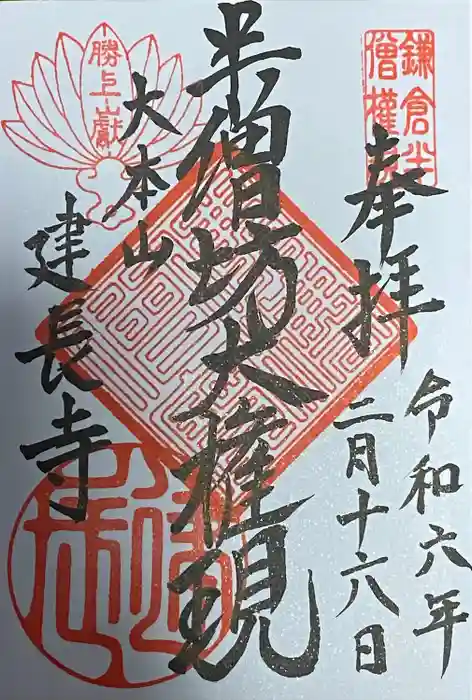 奉拝
令和六年
二月十六日
半僧坊大権現
大本山
建長寺
勝上嶽